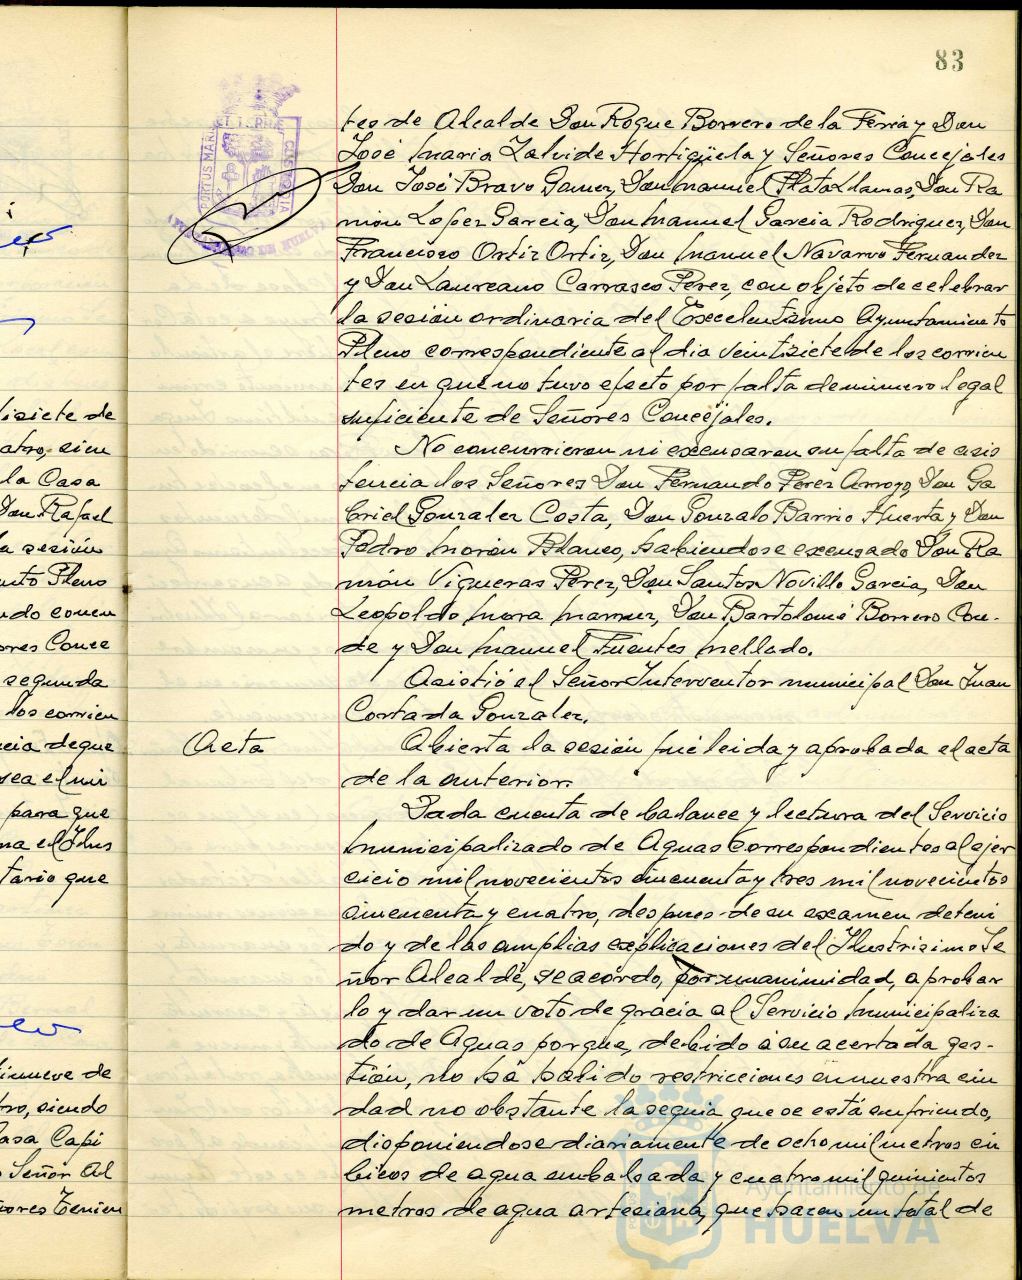 83
tes de Alcalde Don Roque Borrero de la Feria y Don
José Maria Zalvide Hortigüela y Señores Concejales
Don José Bravo Gamez, Don Manuel Plata Llamas, Don Ra
món Lopez Garcia, Don Manuel Garcia Rodriguez, Don
Francisco Ortiz Ortiz, Don Manuel Navarro Fernandez
y Don Laureano Carrasco Perez, con objeto de celebrar
la sesión ordinaria del Excelentísimo Ayuntamiento
Pleno correspondiente al dia veintisiete de los corrien
tes en que no tuvo efecto por falta de número legal
suficiente de Señores Concejales.
No concurrieron ni excusaron su falta de asis
tencia los Señores Don Fernando Perez Arroyo, Don Ga
briel Gonzalez Costa, Don Gonzalo Barrio Huerta y Don
Pedro Morón Blanco, habiendose excusado Don Ra
món Vigueras Pérez, Don Santos Novillo Garcia, Don
Leopoldo Mora Don Bartolomé Borrero Con-
de y Don Manuel Fuentes Mellado.
Asistió el Señor Interventor municipal Don Juan
Cortada Gonzalez.
Acta
Abierta la sesión fué leida y aprobada el acta
de la anterior.
Dada cuenta de balance y lectura del Servicio
Municipalizado de Aguas correspondientes al ejer
cicio mil novecientos cincuenta y tres mil novecientos
cincuenta y cuatro, despues de su examen deteni
do y de las amplias explicaciones del Ilustrisimo Se
ñor Alcalde, se acordo, por unanimidad, aprobar
lo y dar un voto de gracia al Servicio Municipaliza
do de Aguas porque, debido á su acertada ges-
tión, no há habido restricciones en nuestra ciu
dad no obstante la sequia que se está sufriendo,
disponiendose diariamente de ocho mil metros cú
bicos de agua embalsada y cuatro mil quinientos
metros de agua artesiana, que hacen un total de
isiete de
atro, sien
la Casa
Don Rafael
la sesión
nto Pleno
ndo concu
ores Conce
segunda
los corrien
cia de que
sea el mi
para que
na el Ilus
tario que
inueve de
tro, siendo
Casa Capi
Señor Al
ñores Tenien
PORTUS MARIS
ET TERRAE
CUSTODIA
Ayuntamiento de
HUELVA